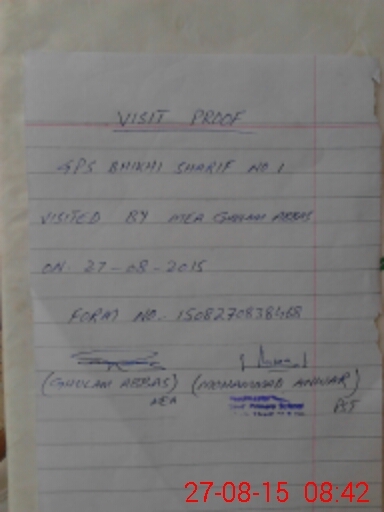 VISIT PROOF
GPS BHIKHI SHARIF NO 1
VISITED BY MEA GHULAM ABBAS
ON 27-08-2015
FORM NO. 1508270838468
(GHULAM ABBAS) (MOHAMMAD ANWAR)
MEA PST
27-08-15 08:42